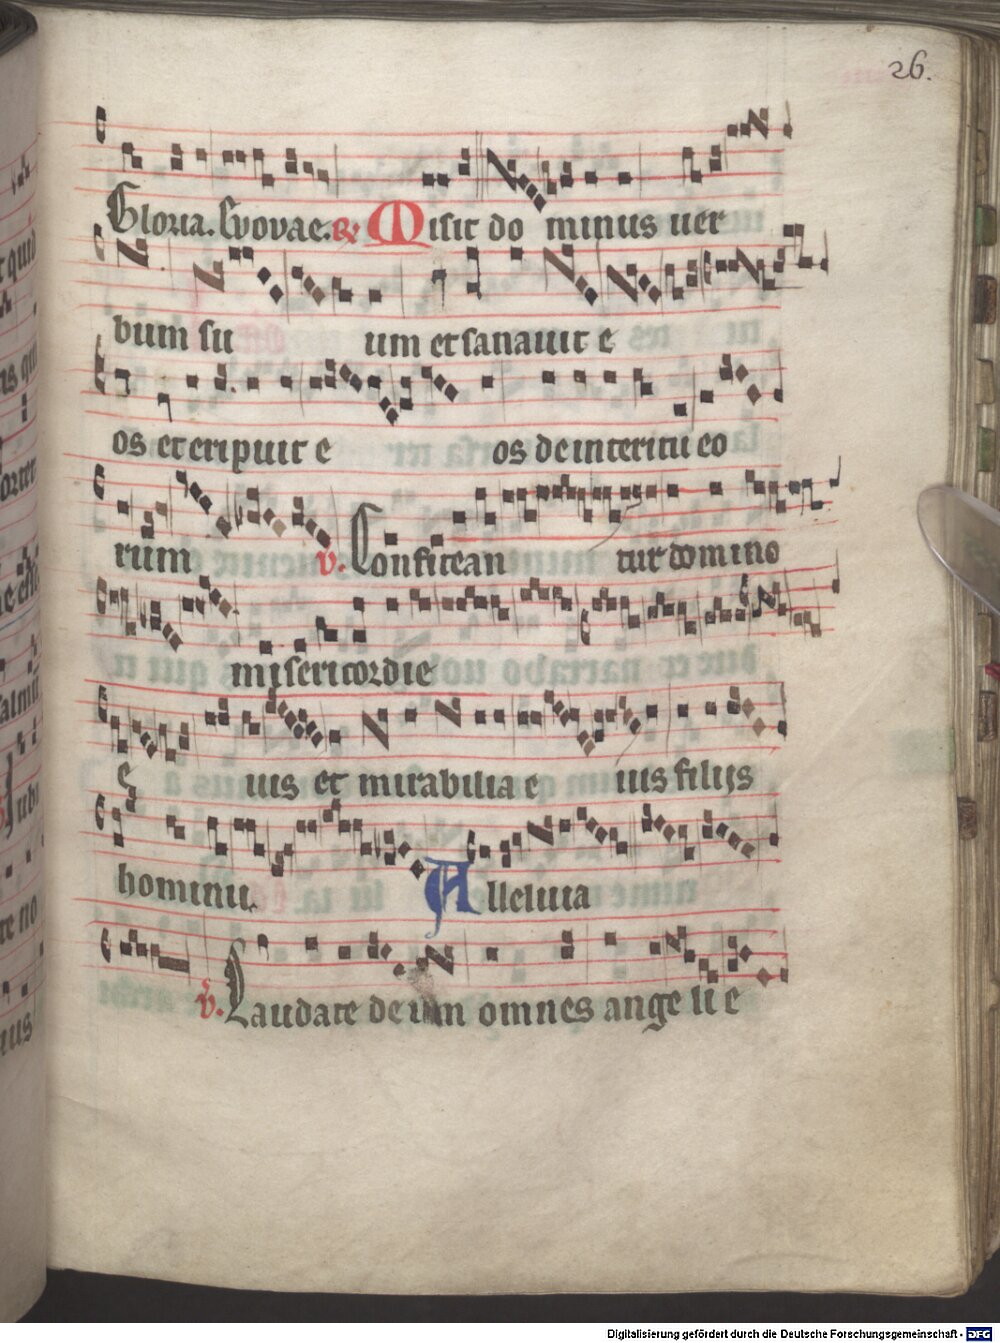 26.
Gloria. Evovae. R. Misit do minus uer
bum su um et sanauit e
os et eripuit e os de interitu eo
rum v. Confitean tur domino
misericordie
e ius et mirabilia e ius filijs
hominu. Alleluia
v. Laudate deum omnes ange li e
Digitalisierung gefördert durch die Deutsche Forschungsgemeinschaft - DFG